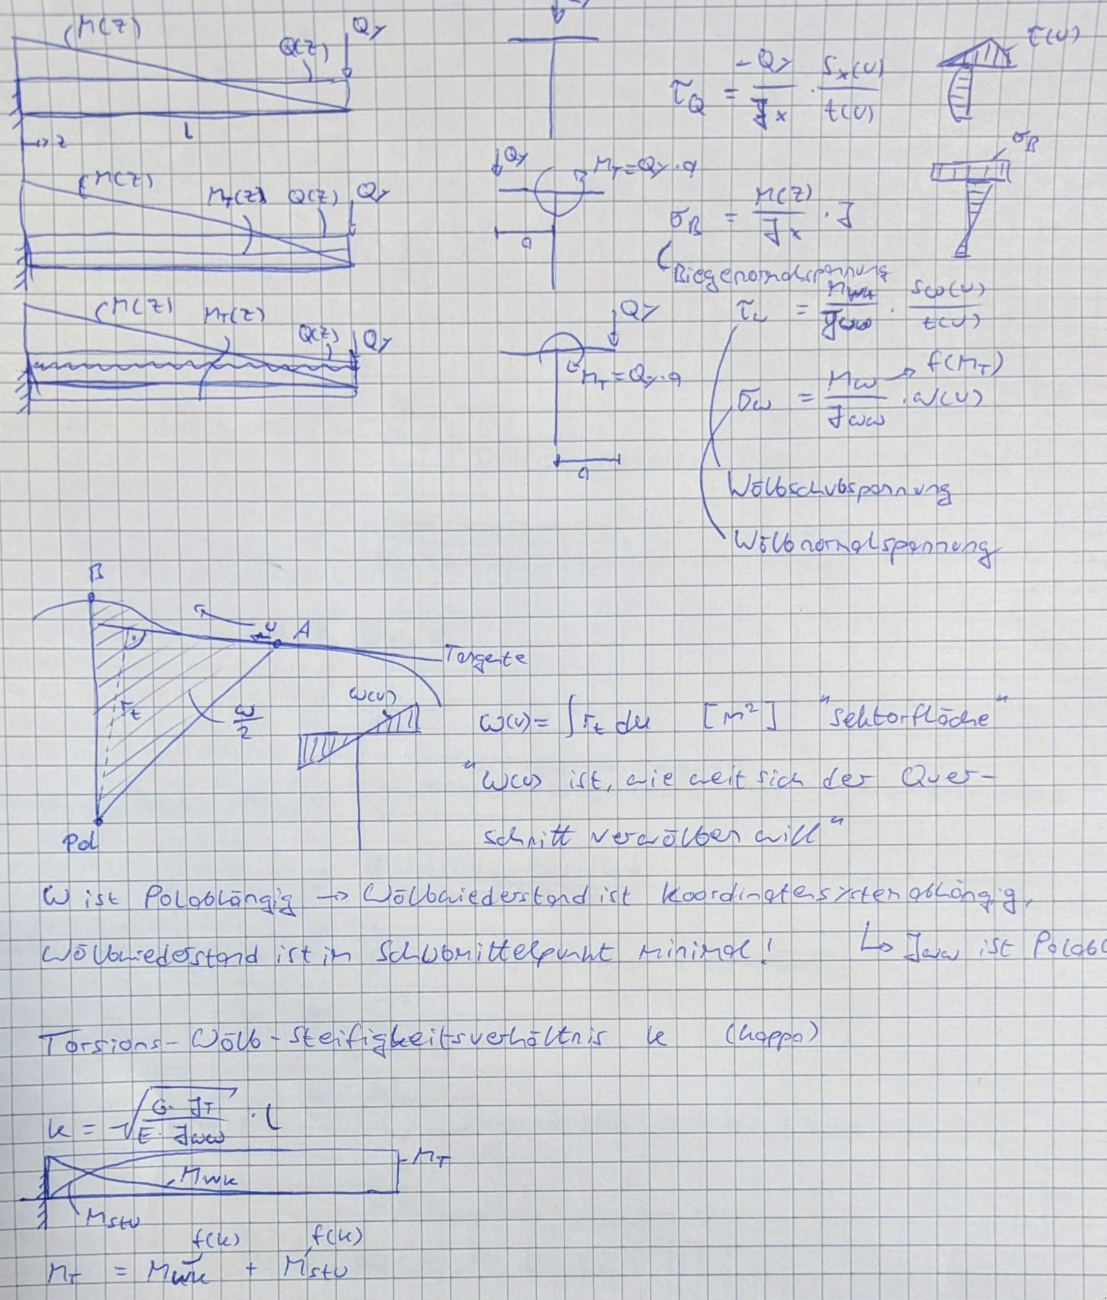 M(z)
Qy
Q(z)
l
z
τQ = -Qy/Jx · Sx(u)/t(u)
τ(u)
M(z)
MT(z) Q(z) Qy
Qy
MT = Qy·a
a
σB = M(z)/Jx · y
σB
Biegenormalspannung
M(z)
MT(z)
Q(z)
Qy
Qy
MT = Qy·a
a
= Mwk/Jωω · Sω(u)/t(u)
σω = Mω/Jωω · ω(u)
f(MT)
Wölbschubspannung
Wölbnormalspannung
B
u A
Tangente
rt
ω/2
ω(u)
Pol
ω(u) = ∫ rt du [m²] "Sektorfläche"
"ω(u) ist, wie weit sich der Quer-
schnitt verwölben will"
ω ist Polabhängig → Wölbwiederstand ist koordinatensystemabhängig,
Wölbwiederstand ist im Schubmittelpunkt minimal! ↳ Jωω ist
Torsions-Wölb-Steifigkeitsverhältnis κ (kappa)
κ = √(G·JT / E·Jωω) · l
MT
Mwk
Mstv
f(κ) f(κ)
MT = Mwk + Mstv